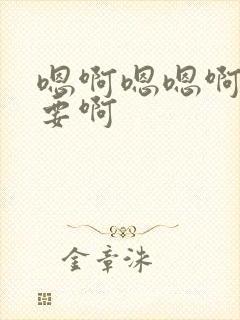 嗯啊嗯嗯啊
要啊
金章洙